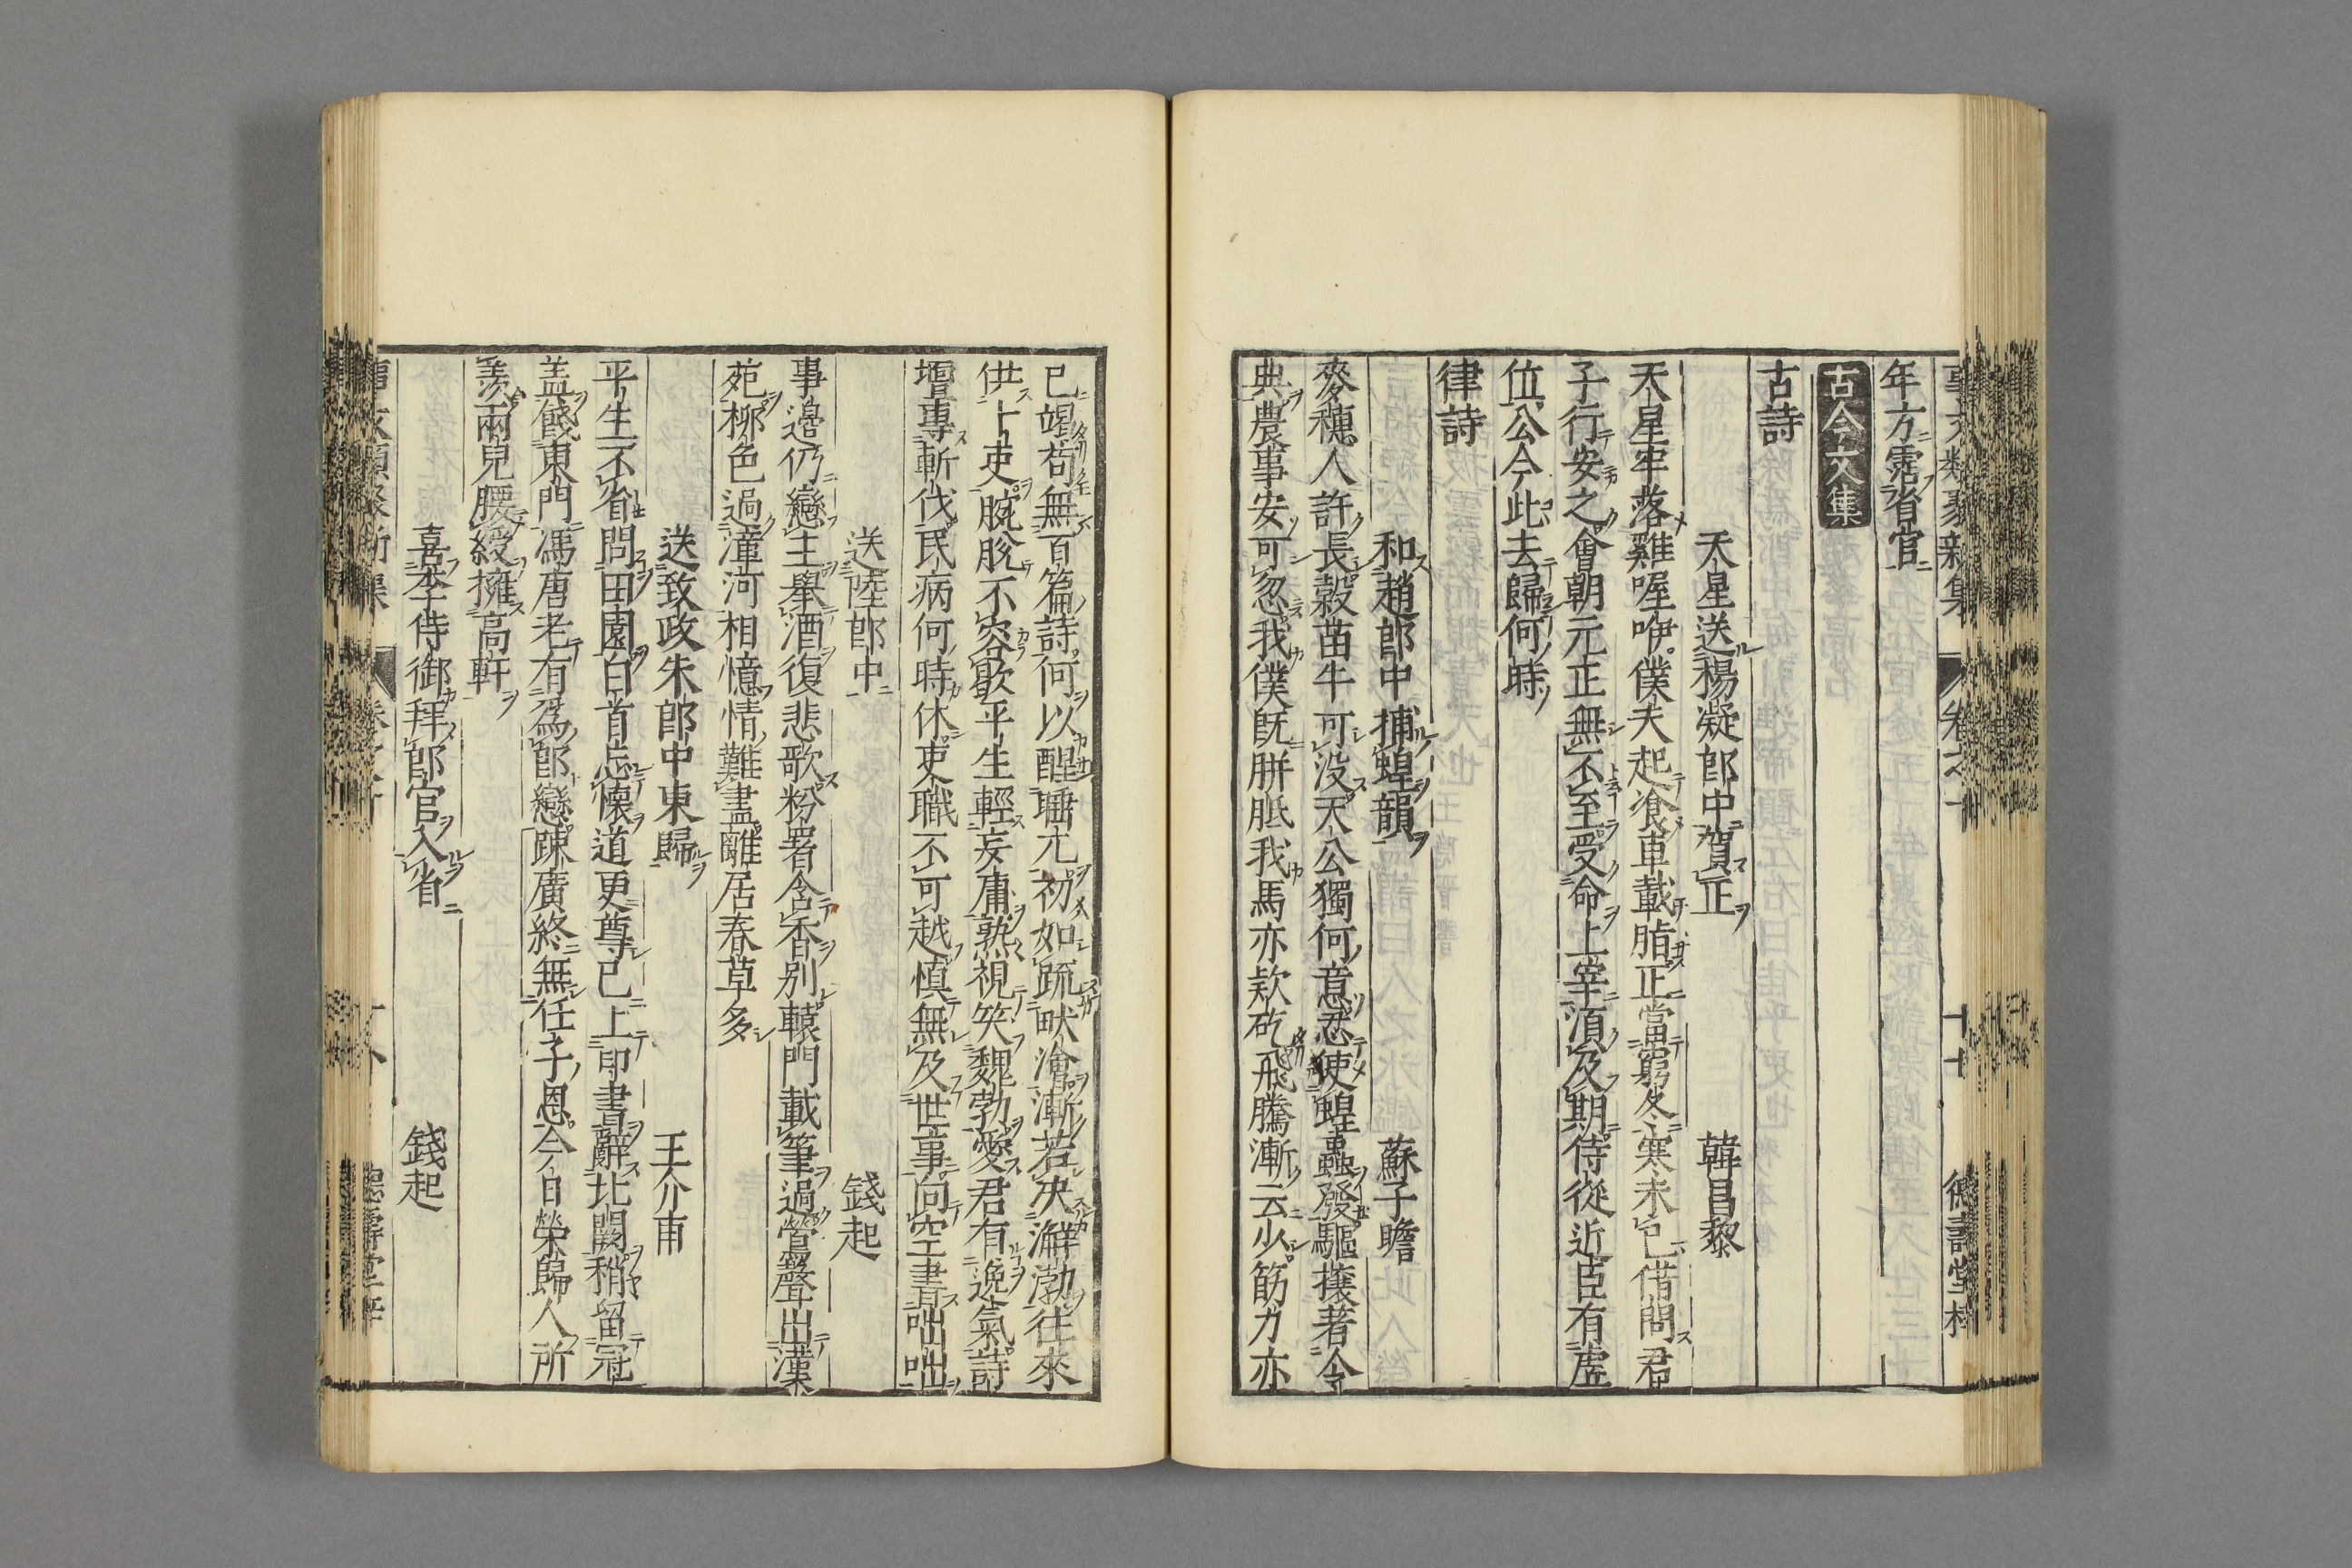 事文類聚新集 卷之十 十七 德壽堂梓
年方霑省官
古今文集
古詩
天星送楊凝郎中賀正 韓昌黎
天星牢落雞喔咿僕夫起飡車載脂正當窮冬寒未已借問君
子行安之會朝元正無不至受命上宰須及期侍從近臣有虛
位公今此去歸何時
律詩
和趙郎中捕蝗韻 蘇子瞻
麥穗人許長穀苗牛可没天公獨何意忍使蝗蟲發驅攘著令
典農事安可忽我僕既胼胝我馬亦款矻飛騰漸云少筋力亦
已竭苟無百篇詩何以醒睡兀初如疏畎澮漸若决澥渤往來
供十吏腕脫不容歇平生輕妄庸熟視笑魏勃愛君有逸氣詩
壇專斬伐民病何時休吏職不可越慎無及世事向空書咄咄
送陸郎中 錢起
事邊仍戀主舉酒復悲歌粉署含香别轅門載筆過鶯聲出漢
苑柳色過漳河相憶情難盡離居春草多
送致政朱郎中東歸 王介甫
平生不省問田園白首忘懷道更尊已上印書辭北闕稍留冠
盖餞東門馮唐老有為郎戀踈廣終無任子恩今日榮歸人所
羨兩兒腰綬擁高軒
喜李侍御拜郎官入省 錢起